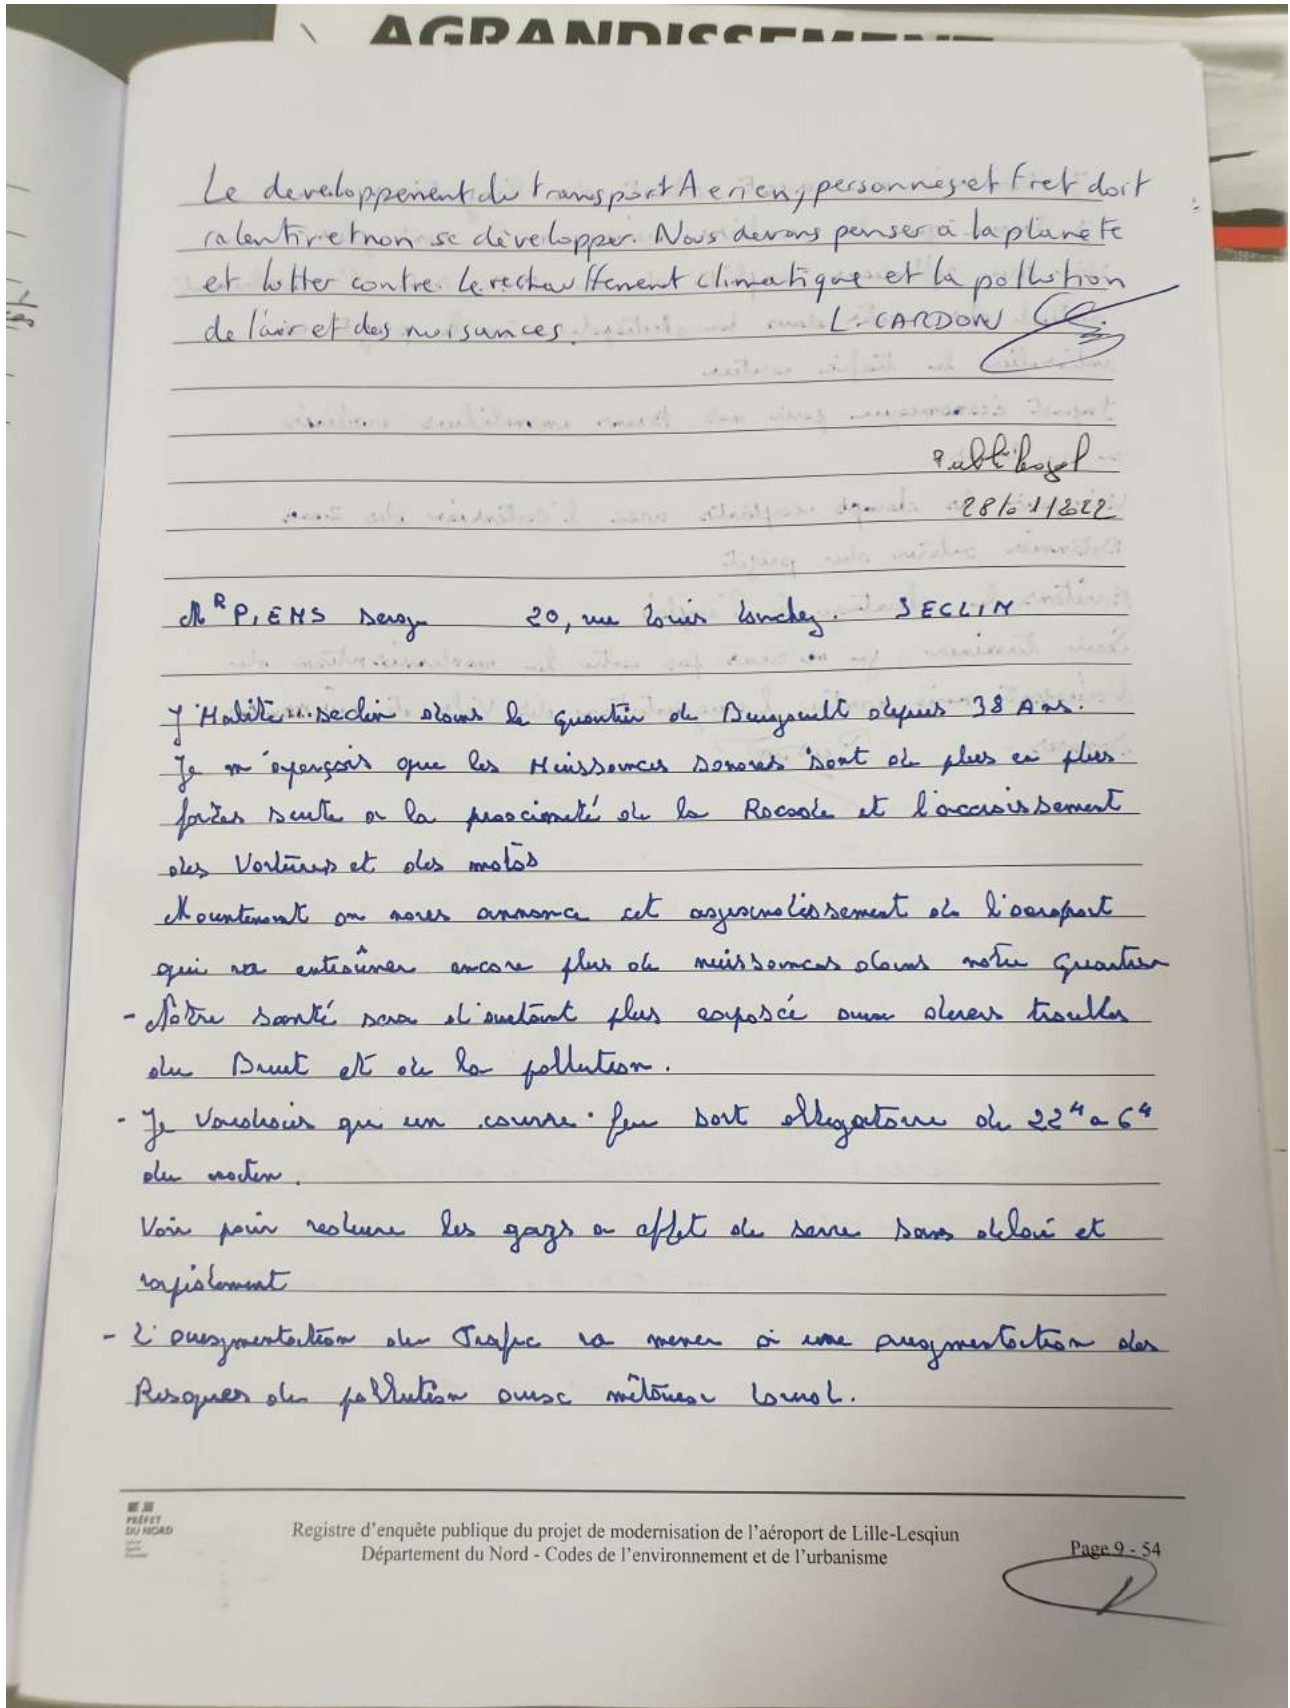 AGRANDISSEMENT
Le developpement du transport Aerien, personnes et Fret doit
ralentir et non se développer. Nous devons penser à la planète
et lutter contre le rechauffement climatique et la pollution
de l'air et des nuisances. L. CARDON
28/01/2022
MR PIENS Serge 20, rue Louis SECLIN
J'Habite Seclin dans le quartier de Burgault depuis 38 Ans.
Je m'aperçois que les Nuissances sonores sont de plus en plus
fortes suite a la proximité de la Rocade et l'accroissement
des Voitures et des motos
Maintenant on nous annonce cet agrandissement de l'aeroport
qui va entraîner encore plus de nuissances dans notre Quartier
- Nôtre santé sera d'autant plus exposée aux divers troubles
du Bruit et de la pollution.
- Je Voudrais qu un couvre. feu soit obligatoire de 22H a 6H
du matin.
Voir pour reduire les gazs a effet de serre sans delai et
rapidement
- L'augmentation du Trafic va mener à une augmentation des
Risques de pollution aux
PRÉFET
DU NORD
Registre d'enquête publique du projet de modernisation de l'aéroport de Lille-Lesqiun
Département du Nord - Codes de l'environnement et de l'urbanisme
Page 9 - 54